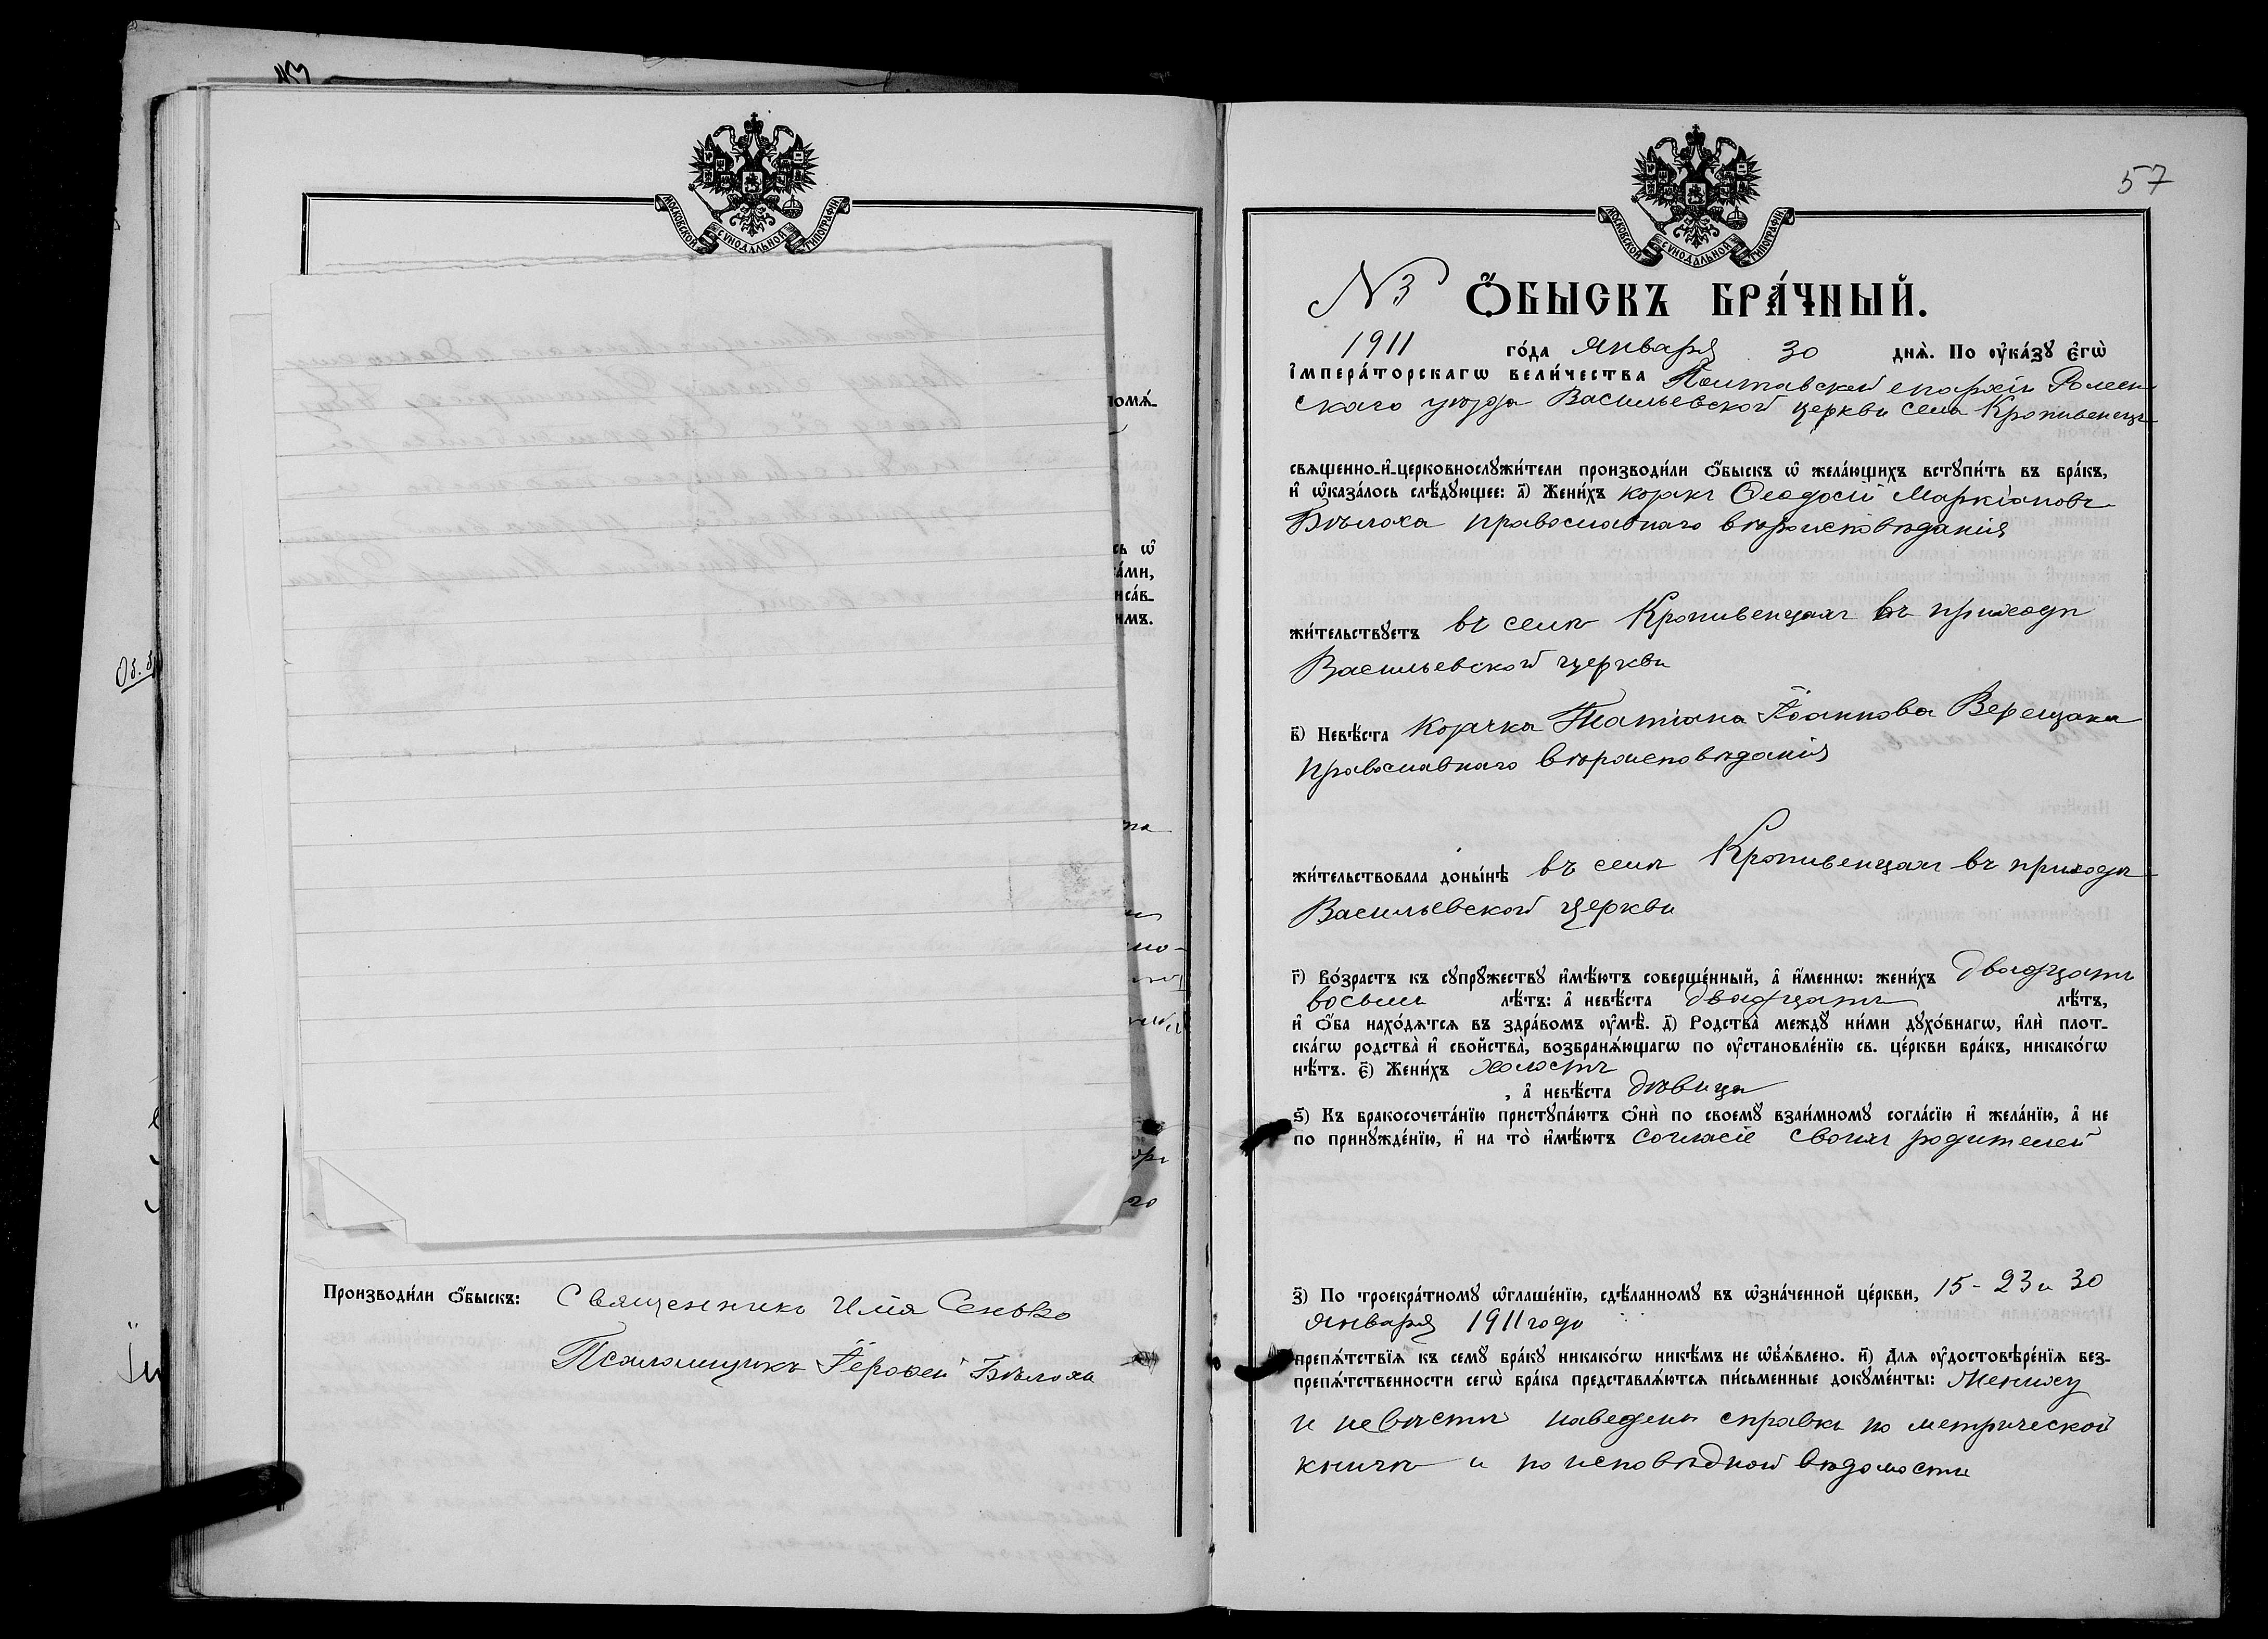 МОСКОВСКОЙ СѴНОДАЛЬНОЙ ТИПОГРАФІИ
Производи́ли ѻ҆́быскъ: Священникъ Илія Сенько
Псаломщикъ Іероѳей Бѣлоха
57
МОСКОВСКОЙ СѴНОДАЛЬНОЙ ТИПОГРАФІИ
N 3 Ѻ҆́БЫСКЪ БРА́ЧНЫЙ.
1911 го́да Января 30 днѧ̀. По ᲂу҆ка́зꙋ є҆гѡ̀
і҆мпера́торскагѡ вели́чества Полтавской епархіи Ромен-
скаго уѣзда Васильевской церкви села Кропивенецъ
свѧще́нно-и҆-церковнослꙋжи́тели производи́ли ѻ҆́быскъ ѡ҆ жела́ющихъ встꙋпи́ть въ бра́къ,
и҆ ѡ҆каза́лось слѣ́дꙋющее: а҃) Жени́хъ козакъ Ѳеодосій Маркіановъ
Бѣлоха православнаго вѣроисповѣданія
жи́тельствꙋетъ въ селѣ Кропивенцахъ въ приходѣ
Васильевской церкви
в҃) Невѣ́ста козачка Татіана Іоаннова Верещака
православнаго вѣроисповѣданія
жи́тельствовала доны́нѣ въ селѣ Кропивенцахъ въ приходѣ
Васильевской церкви
г҃) Во́зрастъ къ сꙋпрꙋ́жествꙋ и҆мѣ́ютъ соверше́нный, а҆ и҆́меннѡ: жени́хъ двадцать
восемь лѣ́тъ: а҆ невѣ́ста двадцать лѣ́тъ,
и҆ ѻ҆́ба нахо́дѧтсѧ въ здра́вомъ ᲂу҆мѣ̀. д҃) Родства̀ междꙋ̀ ни́ми дꙋхо́внагѡ, и҆лѝ плот-
ска́гѡ родства̀ и҆ свойства̀, возбранѧ́ющагѡ по ᲂу҆становле́нїю св. це́ркви бра́къ, никако́гѡ
нѣ́тъ. є҃) Жени́хъ холостъ
, а҆ невѣ́ста дѣвица
ѕ҃) Къ бракосочета́нїю пристꙋпа́ютъ ѻ҆нѝ по своемꙋ̀ взаи́мномꙋ согла́сїю и҆ жела́нїю, а҆ не
по принꙋжде́нїю, и҆ на то̀ и҆мѣ́ютъ согласіе своихъ родителей
з҃) По троекра́тномꙋ ѡ҆глаше́нїю, сдѣ́ланномꙋ въ ѡ҆зна́ченной це́ркви, 15 - 23 и 30
Января 1911 года
препѧ́тствїѧ къ семꙋ̀ бра́кꙋ никако́гѡ никѣ́мъ не ѡ҆б̾ѧ́влено. и҃) Длѧ ᲂу҆достовѣре́нїѧ без-
препѧ́тственности сегѡ̀ бра́ка представлѧ́ютсѧ пи́сьменные докꙋме́нты: Жениху
и невѣстѣ наведена справка по метрической
книгѣ и по исповѣдной вѣдомости